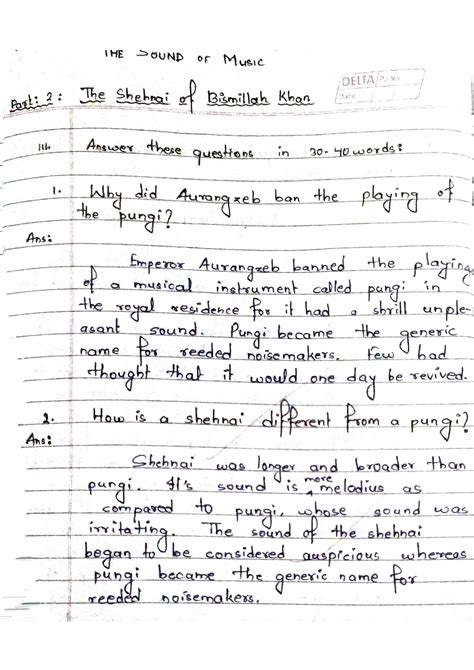 THE SOUND OF MUSIC
DELTA Pg No.
Date
Part: 2: The Shehnai of Bismillah Khan
III. Answer these questions in 30-40 words:
1. Why did Aurangzeb ban the playing of
the pungi?
Ans:
Emperor Aurangzeb banned the playing
of a musical instrument called pungi in
the royal residence for it had a shrill unple-
asant sound. Pungi became the generic
name for reeded noisemakers. Few had
thought that it would one day be revived.
2. How is a shehnai different from a pungi?
Ans:
Shehnai was longer and broader than
pungi. It's sound is more melodius as
compared to pungi, whose sound was
irritating. The sound of the shehnai
began to be considered auspicious whereas
pungi became the generic name for
reeded noisemakers.